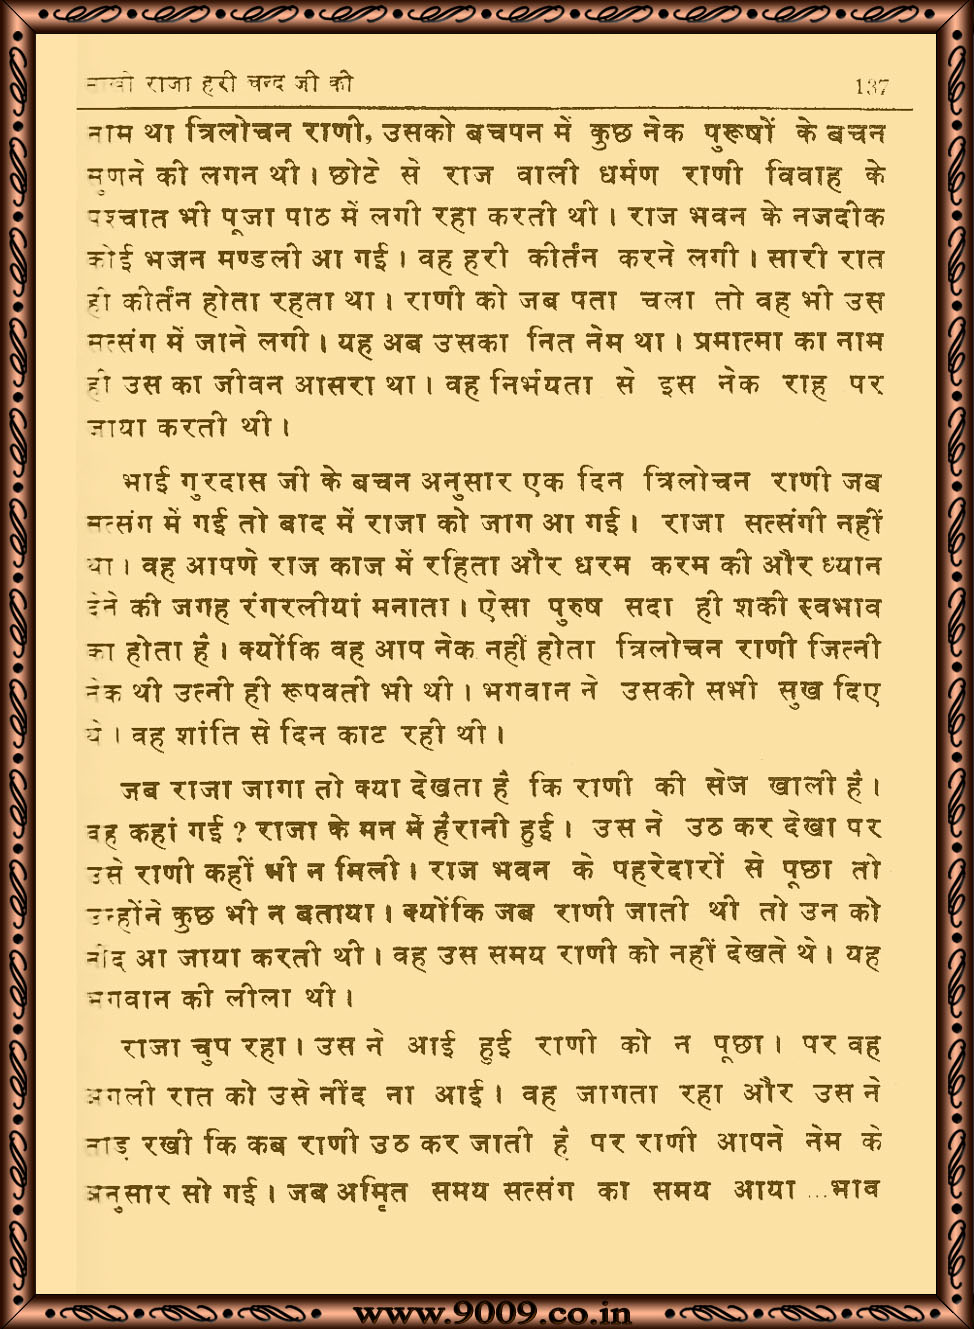 साखी राजा हरी चन्द जी की 137
नाम था त्रिलोचन राणी, उसको बचपन में कुछ नेक पुरूषों के बचन
सुणने की लगन थी। छोटे से राज वाली धर्मण राणी विवाह के
पश्चात भी पूजा पाठ में लगी रहा करती थी। राज भवन के नजदीक
कोई भजन मण्डली आ गई। वह हरी कीर्तन करने लगी। सारी रात
ही कीर्तन होता रहता था। राणी को जब पता चला तो वह भी उस
सत्संग में जाने लगी। यह अब उसका नित नेम था। प्रमात्मा का नाम
ही उस का जीवन आसरा था। वह निर्भयता से इस नेक राह पर
जाया करती थी।
भाई गुरदास जी के बचन अनुसार एक दिन त्रिलोचन राणी जब
सत्संग में गई तो बाद में राजा को जाग आ गई। राजा सत्संगी नहीं
था। वह आपणे राज काज में रहिता और धरम करम की और ध्यान
देने की जगह रंगरलीयां मनाता। ऐसा पुरुष सदा ही शकी स्वभाव
का होता है। क्योंकि वह आप नेक नहीं होता त्रिलोचन राणी जित्नी
नेक थी उत्नी ही रूपवती भी थी। भगवान ने उसको सभी सुख दिए
थे। वह शांति से दिन काट रही थी।
जब राजा जागा तो क्या देखता है कि राणी की सेज खाली है।
वह कहां गई ? राजा के मन में हैरानी हुई। उस ने उठ कर देखा पर
उसे राणी कहीं भी न मिली। राज भवन के पहरेदारों से पूछा तो
उन्होंने कुछ भी न बताया। क्योंकि जब राणी जाती थी तो उन को
नींद आ जाया करती थी। वह उस समय राणी को नहीं देखते थे। यह
भगवान की लीला थी।
राजा चुप रहा। उस ने आई हुई राणी को न पूछा। पर वह
अगली रात को उसे नींद ना आई। वह जागता रहा और उस ने
ताड़ रखी कि कब राणी उठ कर जाती है पर राणी आपने नेम के
अनुसार सो गई। जब अमृित समय सत्संग का समय आया ...भाव
www.9009.co.in